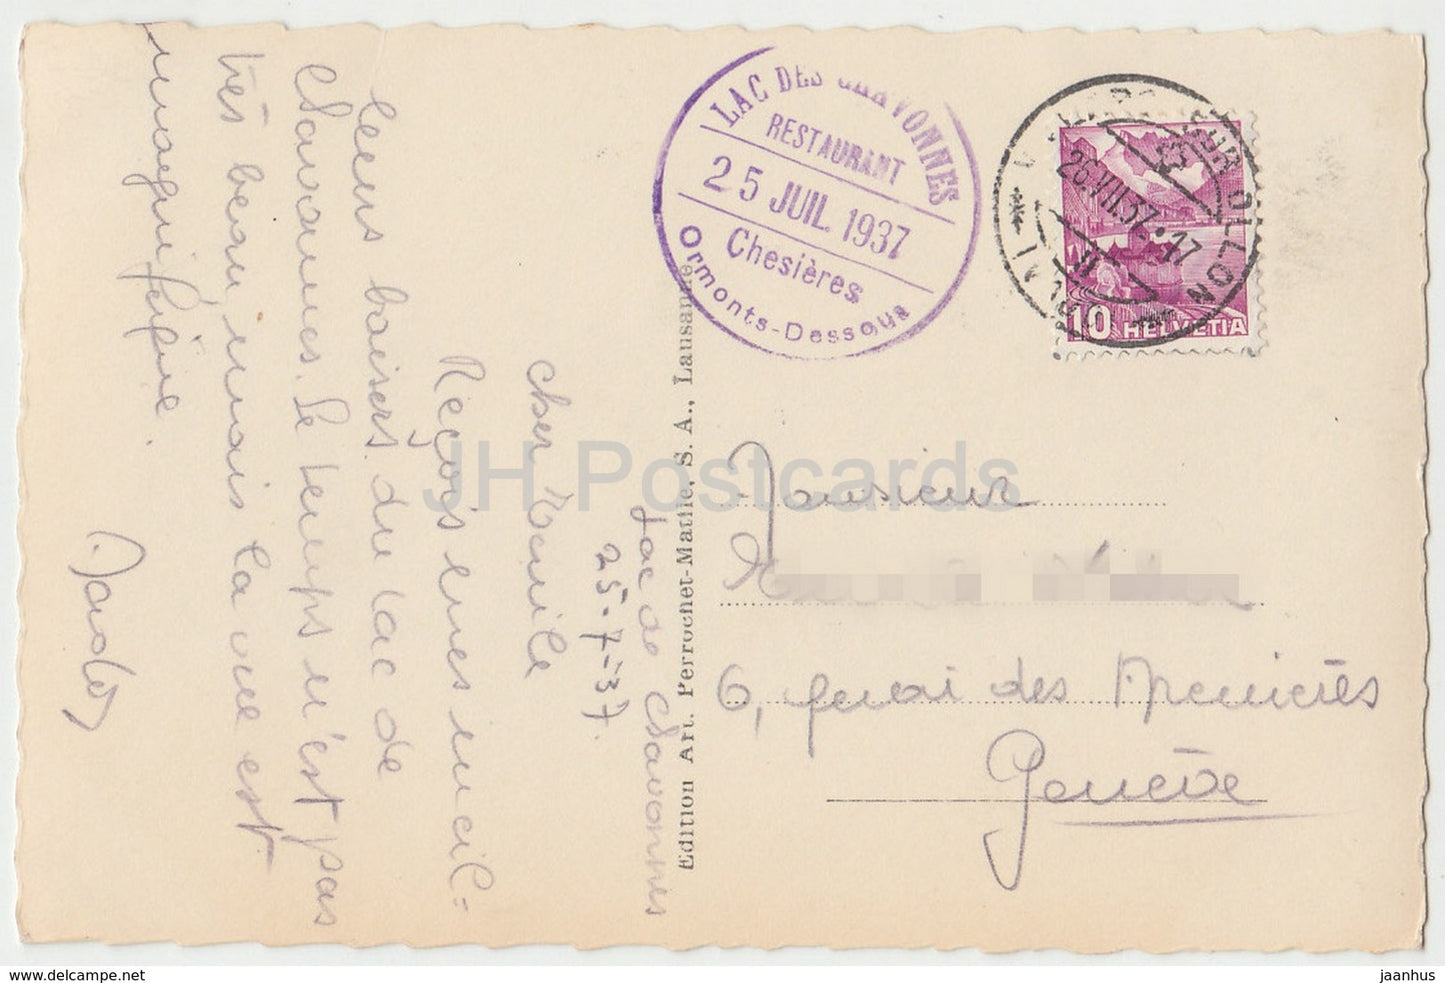 Lac de Chavonnes
25-7-37.
Cher
Reçois mes meil=
leurs baisers du lac de
Chavonnes. Le temps n'est pas
très beau, mais la vue est
magnifique.
LAC DES CHAVONNES
RESTAURANT
25 JUIL. 1937
Chesières
Ormonts-Dessous
SUR OLLON
26.VII.37.17
10 HELVETIA
Edition Art. Perrochet-Matile, S. A., Lausanne
Monsieur
6, quai des Arenières
Genève
JH Postcards
jaanhus @ delcampe.net